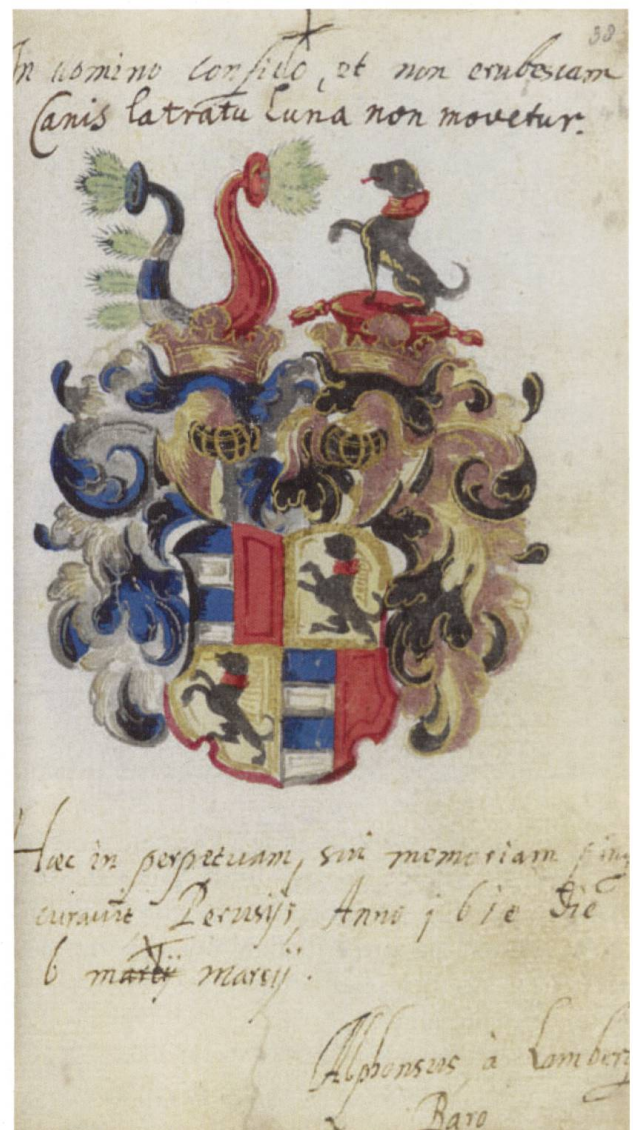 38
In domino confido, et non erubescam
Canis latratu Luna non movetur.
Haec in perpetuam, sui memoriam
curavit Perusijs, Anno 161e die
6 martij marsij.
Alphonsus à Lamberg
Baro